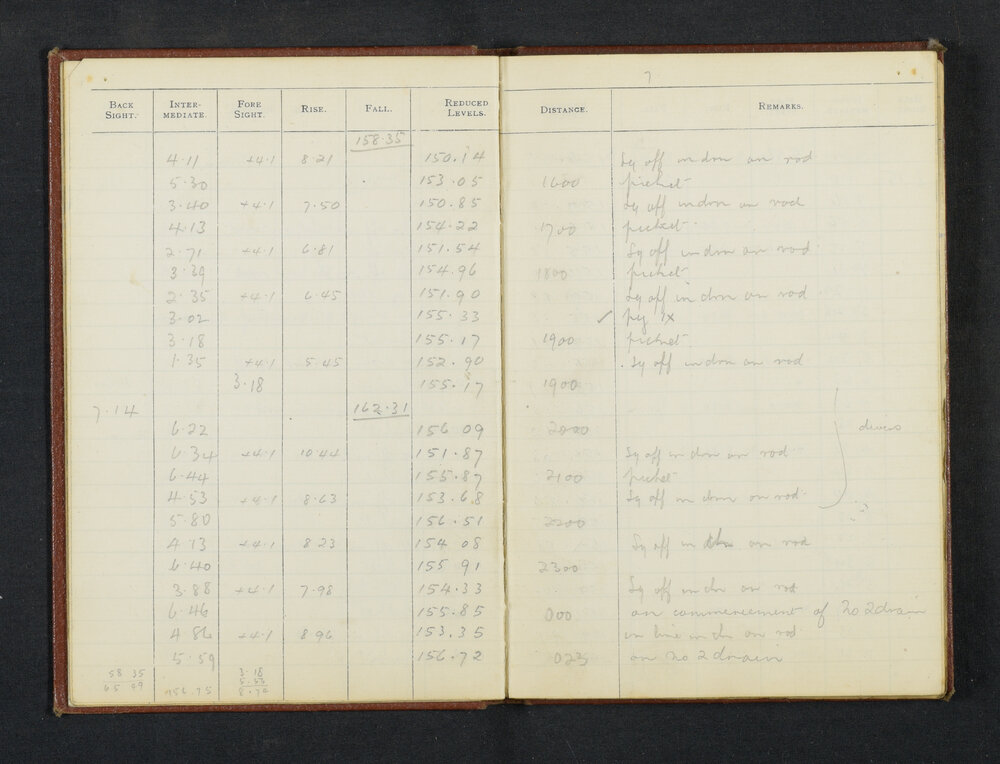 7
BACK SIGHT. INTER-MEDIATE. FORE SIGHT. RISE. FALL. REDUCED LEVELS. DISTANCE. REMARKS.
158.35
4.11 +4.1 8.21 150.14 Sq off in drn on rod
5.30 153.05 1600 picket
3.40 +4.1 7.50 150.85 Sq off in drn on rod
4.13 154.22 1700 picket
2.71 +4.1 6.81 151.54 Sq off in drn on rod
3.39 154.96 1800 picket
2.35 +4.1 6.45 151.90 Sq off in drn on rod
3.02 155.33 ✓ peg IX
3.18 155.17 1900 picket
1.35 +4.1 5.45 152.90 Sq off in drn on rod
3.18 155.17 1900
7.14 162.31
6.22 156.09 2000
6.34 +4.1 10.44 151.87 Sq off in drn on rod
6.44 155.87 2100 picket
4.53 +4.1 8.63 153.68 Sq off in drn on rod
5.80 156.51 2200
4.13 +4.1 8.23 154.08 Sq off in drn on rod
6.40 155.91 2300
3.88 +4.1 7.98 154.33 Sq off in drn on rod
6.46 155.85 000 on commencement of No 2 drain
4.86 +4.1 8.96 153.35 in line in drn on rod
5.59 156.72 023 on No 2 drain
58 35 3.18
65 49 156.75